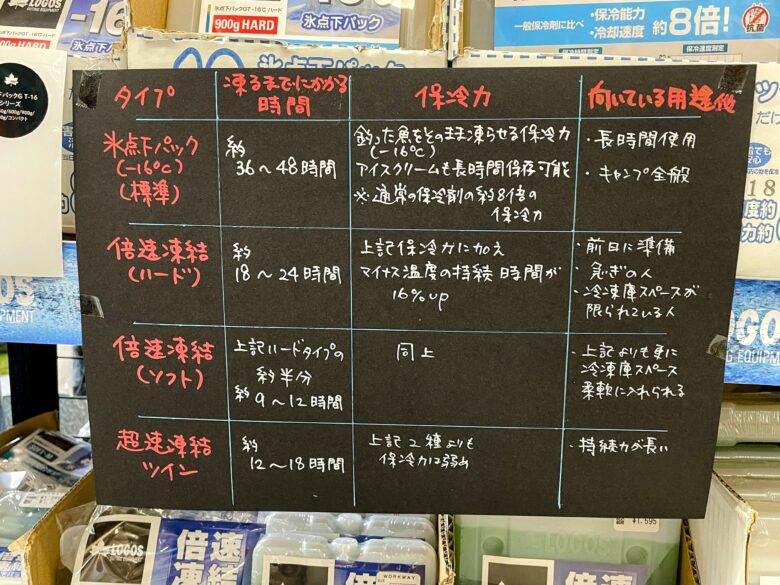 LOGOS
氷点下パックGT-16℃ハード
900g HARD
-16
氷点下パック
一般保冷剤に比べ
・保冷能力
・冷却速度
約8倍!
抗菌
タイプ
凍るまでにかかる
時間
保冷力
向いている用途他
氷点下パック
(-16℃)
(標準)
約
36〜48時間
釣った魚をそのまま凍らせる保冷力
(-16℃)
アイスクリームも長時間保存可能
※通常の保冷剤の約8倍の
保冷力
・長時間使用
・キャンプ全般
倍速凍結
(ハード)
約
18〜24時間
上記保冷力に加え
マイナス温度の持続時間が
16%up
・前日に準備
・急ぎの人
・冷凍庫スペースが
限られている人
倍速凍結
(ソフト)
上記ハードタイプの
約半分
約9〜12時間
同上
・上記よりも更に
冷凍庫スペース
柔軟に入れられる
超速凍結
ツイン
約
12〜18時間
上記2種よりも
保冷力は弱め
・持続力が長い
LOGOS
倍速
LOGOS
倍速
¥1,595